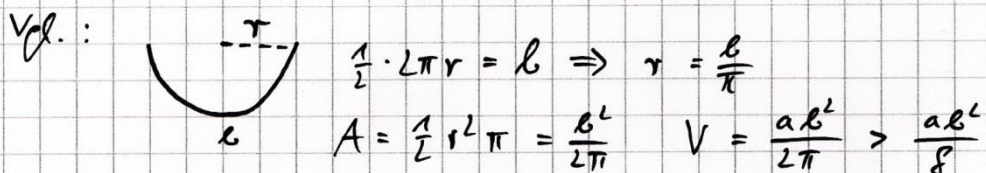 Vgl.:
r
1/2 · 2πr = b ⇒ r = b/π
b
A = 1/2 r² π = b²/2π   V = ab²/2π > ab²/8